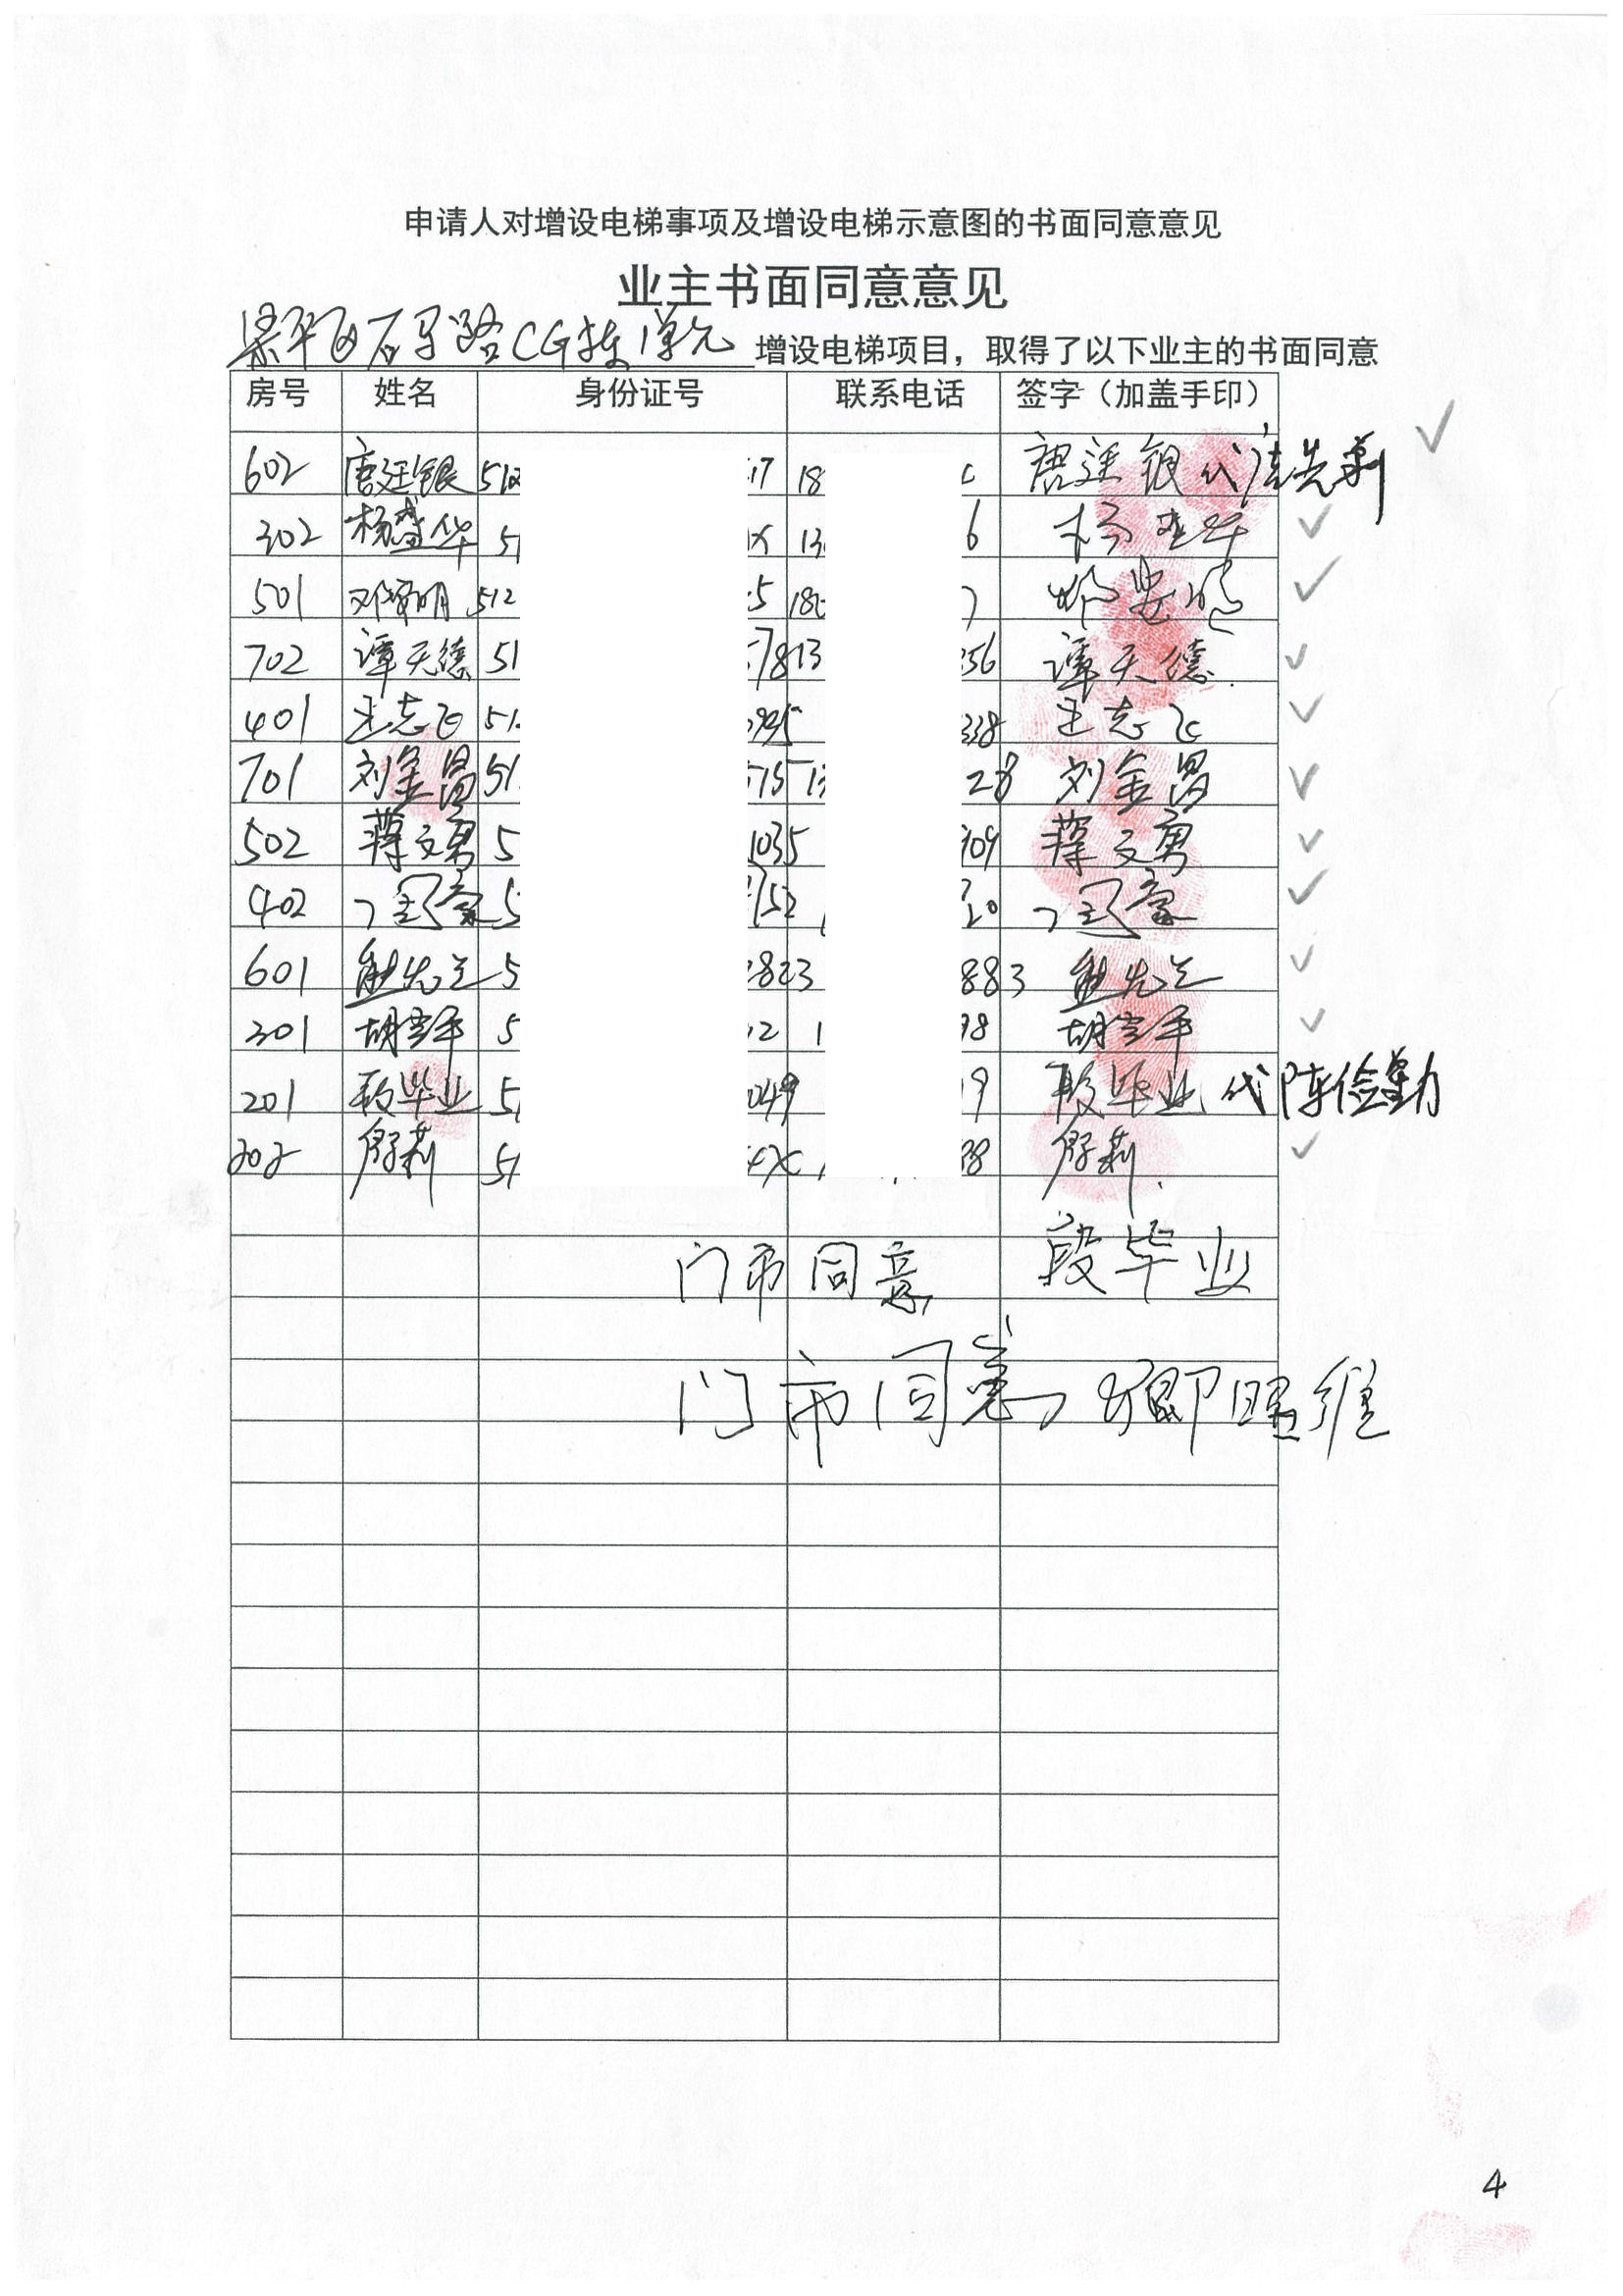 申请人对增设电梯事项及增设电梯示意图的书面同意意见
业主书面同意意见
梁平区石马路CG栋1单元增设电梯项目，取得了以下业主的书面同意
房号 姓名 身份证号 联系电话 签字（加盖手印）
602 唐廷银 512 17 18 唐廷银 代
302 杨盛华 51 X 13 6 杨盛华
501 邓安明 512 5 18 7 邓安明
702 谭天德 51 78 13 56 谭天德
401 王志飞 51 338 王志飞
701 刘金昌 51 515 1 28 刘金昌
502 蒋文勇 5 1035 909 蒋文勇
402 5 152 20
601 熊先兰 5 2823 883 熊先兰
301 5 2 1 98
201 段毕业 51 049 19 段毕业 代 陈俭勤
202 舒莉 51 4X 38 舒莉
门市同意 段毕业
门市同意
4